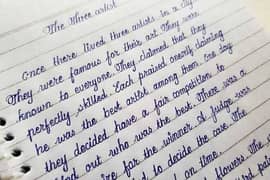 The three artist
Once there lived three artists in a city.
They were famous for their art. They were
known to everyone. They claimed that they
perfectly skilled. Each praised onerly claiming
he was the best artist among them. One day
they decided have a fair competition to
find out who was the best. There was a
for the winner. A judge was
to decide the case. The
on time.
flowers. The